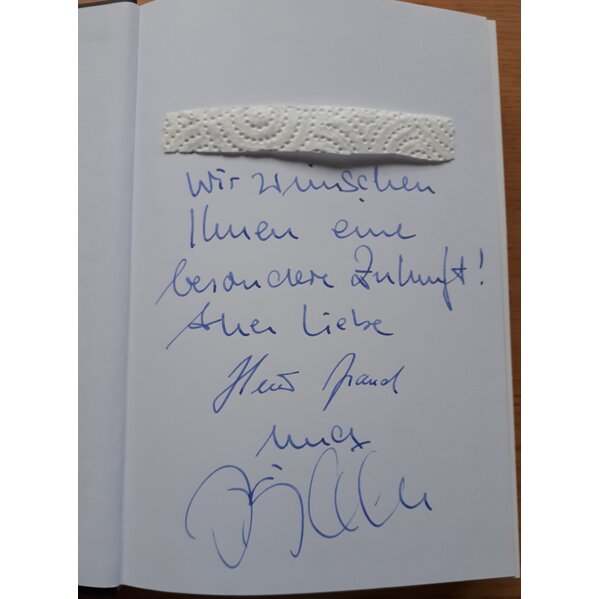 Wir wünschen
Ihnen eine
besondere Zukunft!
Alles Liebe
und